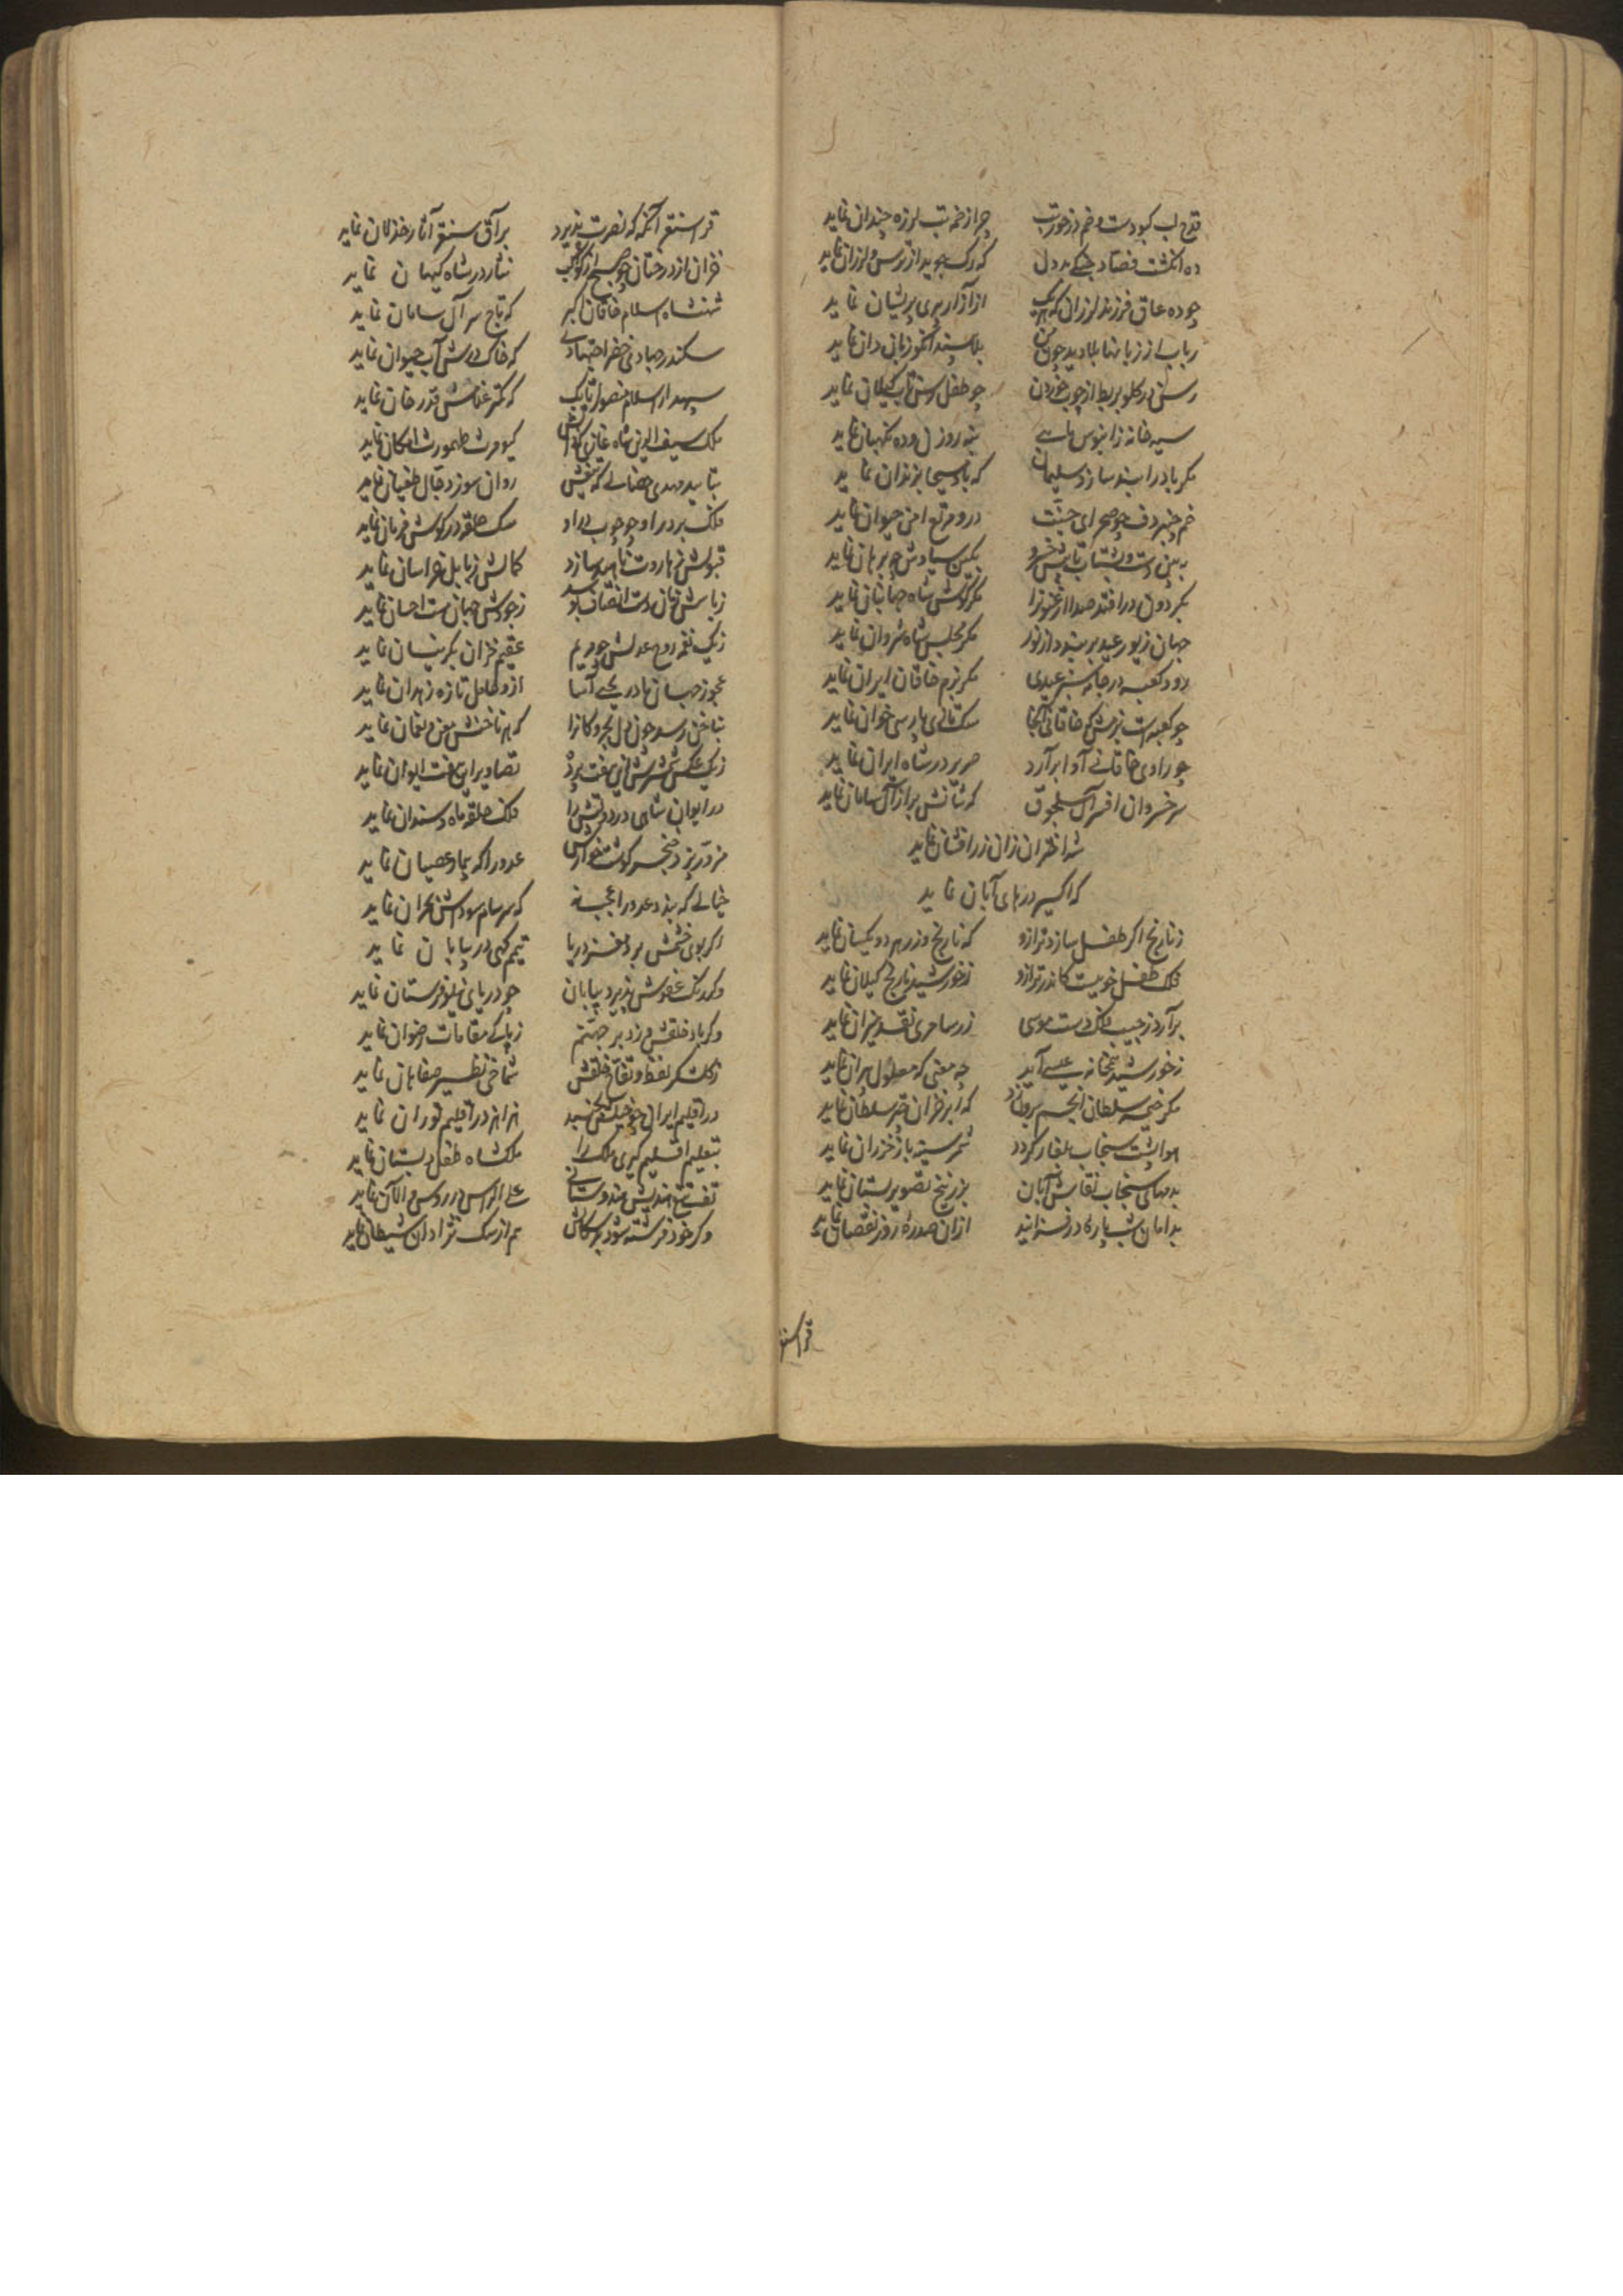 قدح لب کبودست و خم در خوی تب چرا زخمه تب لرزه چندان نماید
ده انگشت فصاد بی دل که رگ جوید از ترس و لرزان نماید
چو ده عاق فرزند لرزان که هر یک از آزار پیری پریشان نماید
رباب از زبانها بلا دیده چون من بلا بیند آنکو زبان دان نماید
رسن در گلو بربط از چوب خوردن چو طفل رسن تاب کسلان نماید
سیه خانه آبنوسین نایی به نه روزن و ده نگهبان نماید
مگر باد را بند سازد سلیمان که باد مسیحا بزندان نماید
خم چنبر دف چو صحرای جنت درو مرتع امن حیوان نماید
ببین دست
بگردون در افتد صدا ارغنون را مگر کوس شاه جهانبان نماید
جهان زیور عید بربندد از نو مگر مجلس شاه شروان نماید
رود کعبه در جامه سبز عیدی مگر بزم خاقان ایران نماید
چو کعبه است بزمش که خاقانی آنجا سگ تازی پارسی خوان نماید
چو راوی خاقانی آوا برآرد صریر در شاه ایران نماید
سر خسروان افسر آل سلجوق که شانش بر از آل سامان نماید
شه اختران زان زر افشان نماید
که اکسیر زرهای آبان نماید
ز نارنج اگر طفل سازد ترازو که نارنج و زر هر دو یکسان نماید
فلک طفل خوییست کاندر ترازو ز خورشید نارنج گیلان نماید
برآرد ز جیب فلک دست موسی زر سامری نقد میزان نماید
ز خورشید همخانه عیسی آید چه معنی که معلول میزان نماید
مگر خیمه سلطان انجم برون زد که ابر خزان چتر سلطان نماید
هوا پشت سنجاب بلغار گردد شمر سینه باز خزران نماید
بدمهای سنجاب نقاش آبان بزرنیخ تصویر بستان نماید
بدامان شب پاره‌ای در فزاید از آن صدره روز نقصان نماید
قراسنقر
قراسنقر آنگه که نصرت پذیرد بر آق سنقر آثار خذلان نماید
خزان از درختان چو صبح از کواکب نثار در شاه کیهان نماید
شهنشاه اسلام خاقان اکبر که تاج سر آل سامان نماید
سکندر جهادی خضر اجتهادی که خاک درش آب حیوان نماید
سپهدار اسلام منصور اتابک که کمتر غلامش قدر خان نماید
ملک سیف الدین شاه غازی کیومرث طهمورث امکان نماید
بتایید مهدی خصالی که تیغش روان سوز دجال طغیان نماید
فلک بر در او چو چوب در او سگ حلقه در گوش فرمان نماید
قبولش ز هاروت ناهید سازد کمالش ز بابل خراسان نماید
ز بأسش زمان دست انصاف بوسد ز جودش جهان مست احسان نماید
ز یک نفخه روح عدلش چو مریم عقیم خزان بکر نیسان نماید
عجوز جهان مادر یحیی آسا ازو حامل تازه زهدان نماید
ز یک عکس شمشیرش این هفت پرده تصاویر این هفت ایوان نماید
در ایوان شاهی در دولتش را فلک حلقه و ماه سندان نماید
عدو را که بیمار عصیان نماید
خیالی که بندد عدو را عجب نه که سرسام سوداش بحران نماید
اگر بوی خشمش برد مغز دریا تیمم گهی در بیابان نماید
وگر رنگ عفوش پذیرد بیابان چو دریای نیلوفرستان نماید
وگر باد خلقش وزد بر جهنم زبانی مقامات رضوان نماید
شماخی نظیر صفاهان نماید
در اقلیم ایران چو خیلش بجنبد هزاهز در اقلیم توران نماید
بتعلیم اقلیم گیری ملک را ملکشاه طفل دبستان نماید
تف تیغ هندیش هندوستان علی الراس در روس و الان نماید
وگر خود فرشته شود بدسگالش هم از سگ نژادان شیطان نماید